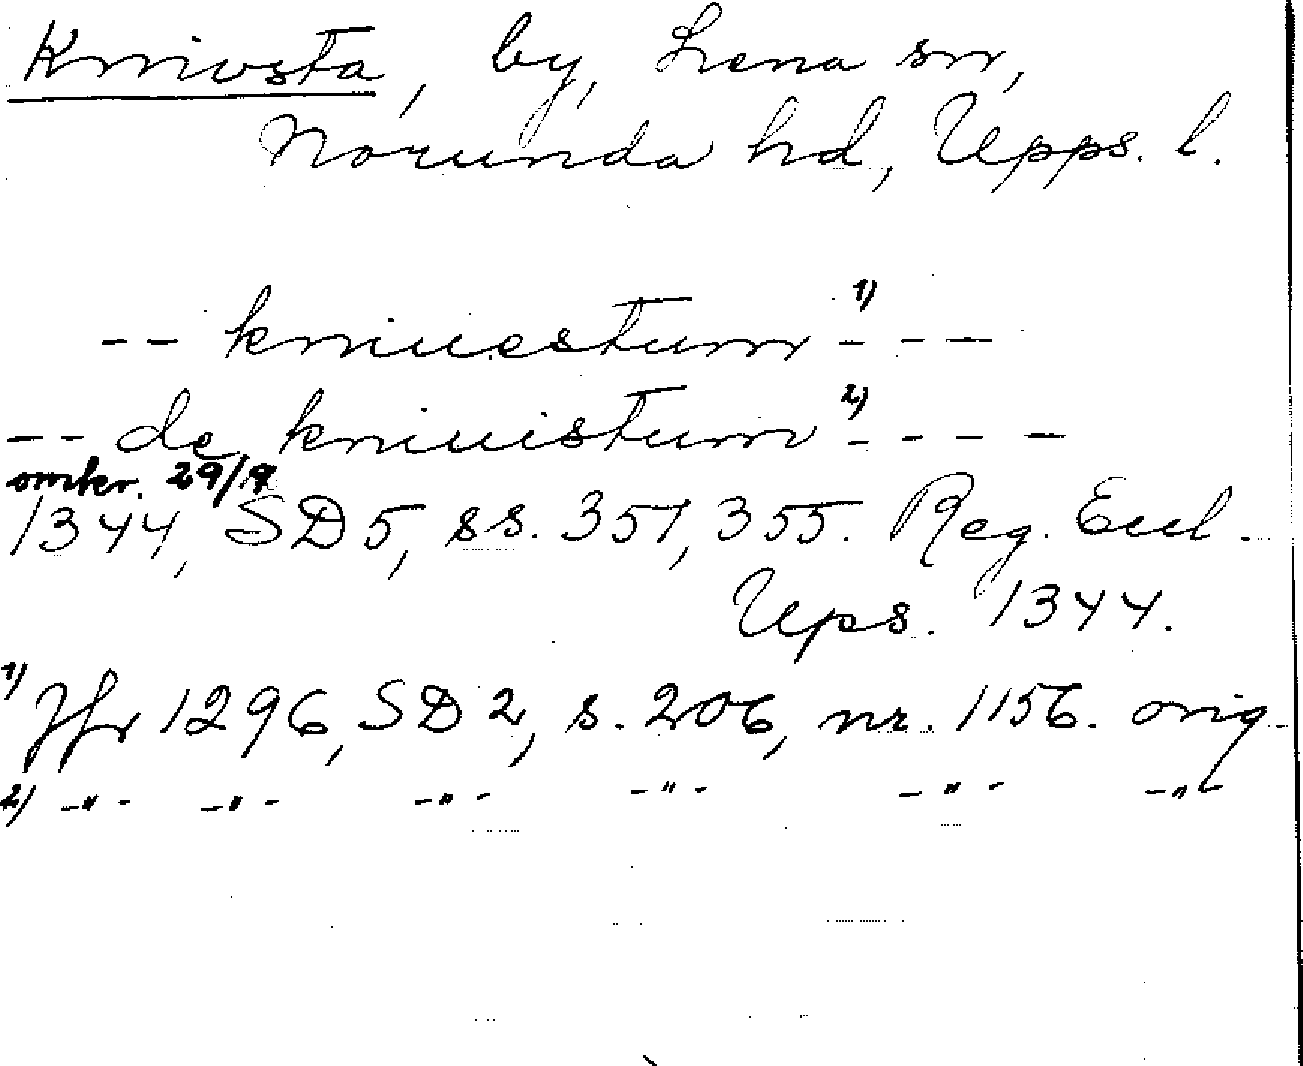 Knivsta, by, Lena sn,
Norunda hd, Upps. l.
-- kniuestum 1) - - -
-- de kniuistum 2) - - - -
omkr. 29/9
1344, SD 5, ss. 351, 355. Reg. Eccl.
Ups. 1344.
1) Jfr 1296, SD 2, s. 206, nr. 1156. orig.
2) -"- -"- -"- -"- -"- -"-